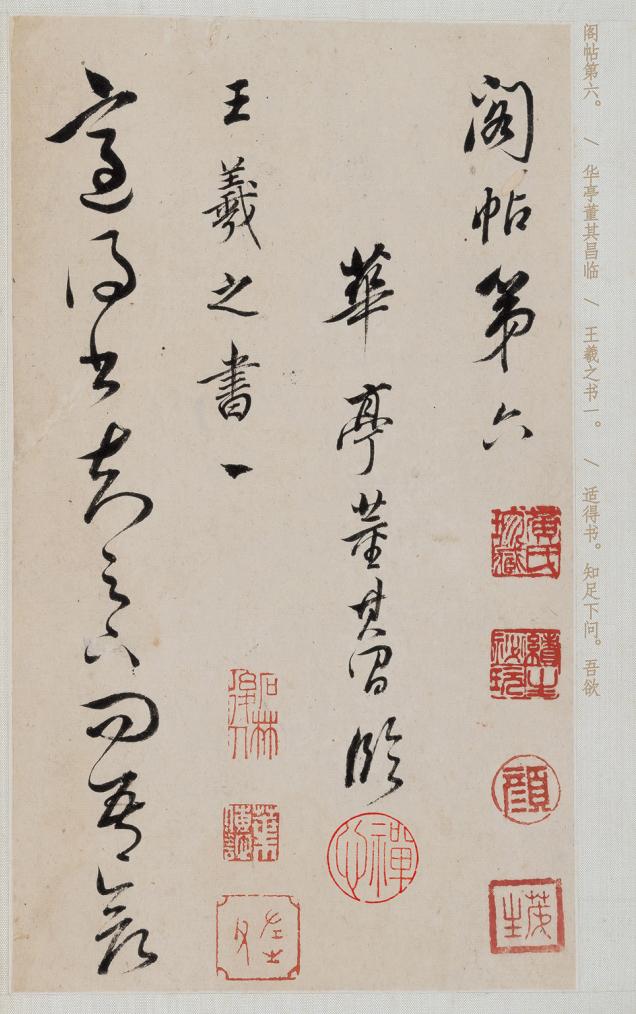 阁帖第六。 \ 华亭董其昌临 \ 王羲之书一。 \ 适得书。知足下问。吾欲
閣帖第六
黃氏珍藏
顏
華亭董其昌臨
王羲之書一
石林後人
適得書知足下問吾欲